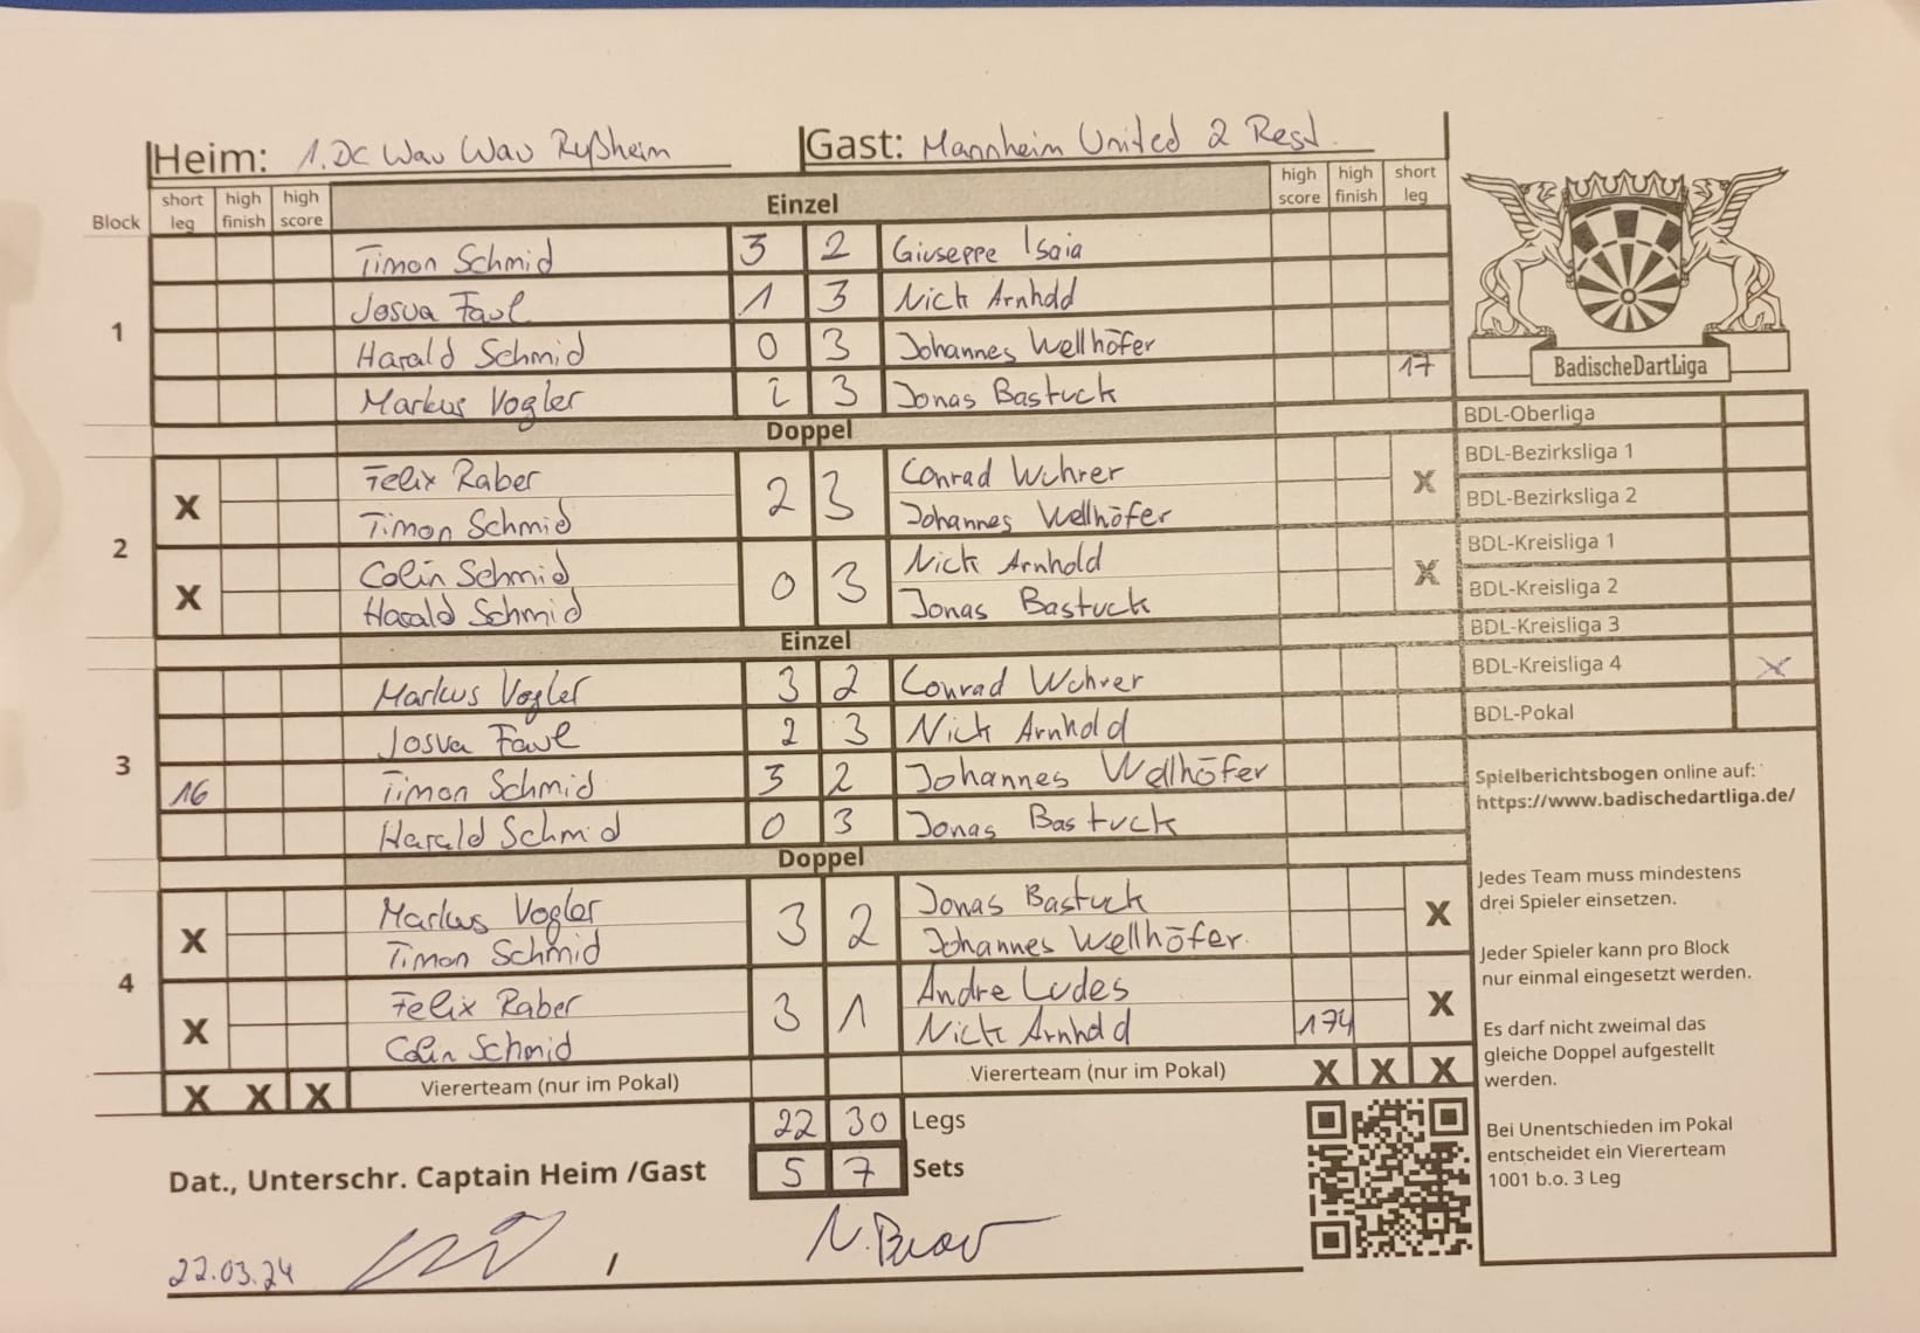 Heim: 1. DC Wau Wau Rußheim Gast: Mannheim United 2 Rest.
Block short leg high finish high score Einzel high score high finish short leg
Timon Schmid 3 2 Giuseppe Isaia
Josua Faul 1 3 Nick Arnhold
1
Harald Schmid 0 3 Johannes Wellhöfer
Markus Vogler 2 3 Jonas Bastuck 17
Doppel
Felix Raber
Timon Schmid
X 2 3
Conrad Wührer
Johannes Wellhöfer
X
2
Colin Schmid
Harald Schmid
X 0 3
Nick Arnhold
Jonas Bastuck
X
Einzel
Markus Vogler 3 2 Conrad Wührer
Josua Faul 2 3 Nick Arnhold
3
16 Timon Schmid 3 2 Johannes Wellhöfer
Harald Schmid 0 3 Jonas Bastuck
Doppel
Markus Vogler
Timon Schmid
X 3 2
Jonas Bastuck
Johannes Wellhöfer
X
4
Felix Raber
Colin Schmid
X 3 1
Andre Ludes
Nick Arnhold 174
X
X X X Viererteam (nur im Pokal) Viererteam (nur im Pokal) X X X
22 30 Legs
5 7 Sets
Dat., Unterschr. Captain Heim /Gast
22.03.24 /
BadischeDartLiga
BDL-Oberliga
BDL-Bezirksliga 1
BDL-Bezirksliga 2
BDL-Kreisliga 1
BDL-Kreisliga 2
BDL-Kreisliga 3
BDL-Kreisliga 4 X
BDL-Pokal
Spielberichtsbogen online auf:
https://www.badischedartliga.de/
Jedes Team muss mindestens
drei Spieler einsetzen.
Jeder Spieler kann pro Block
nur einmal eingesetzt werden.
Es darf nicht zweimal das
gleiche Doppel aufgestellt
werden.
Bei Unentschieden im Pokal
entscheidet ein Viererteam
1001 b.o. 3 Leg